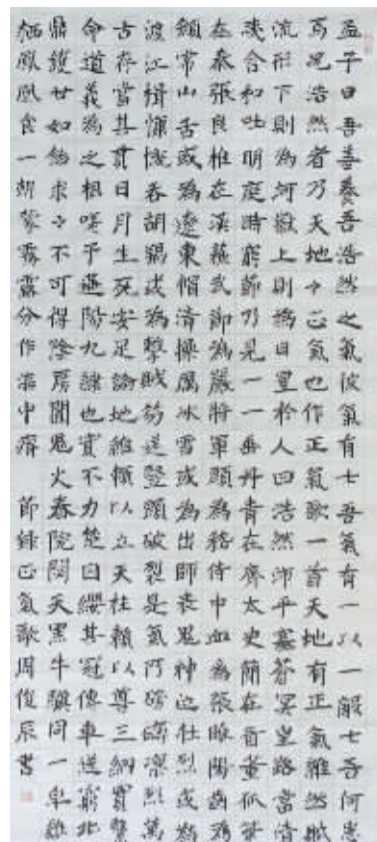 孟子曰吾善養吾浩然之氣彼氣有七吾氣有一以一敵七吾何患
焉況浩然者乃天地之正氣也作正氣歌一首天地有正氣雜然賦
流形下則為河嶽上則為日星於人曰浩然沛乎塞蒼冥皇路當清
夷含和吐明庭時窮節乃見一一垂丹青在齊太史簡在晉董狐筆
在秦張良椎在漢蘇武節為嚴將軍頭為嵇侍中血為張睢陽齒為
顏常山舌或為遼東帽清操厲冰雪或為出師表鬼神泣壯烈或為
渡江楫慷慨吞胡羯或為擊賊笏逆豎頭破裂是氣所磅礴凜烈萬
古存當其貫日月生死安足論地維賴以立天柱賴以尊三綱實繫
命道義為之根嗟予遘陽九隸也實不力楚囚纓其冠傳車送窮北
鼎鑊甘如飴求之不可得陰房闃鬼火春院閟天黑牛驥同一皁雞
栖鳳凰食一朝蒙霧露分作溝中瘠 節錄正氣歌周俊辰書